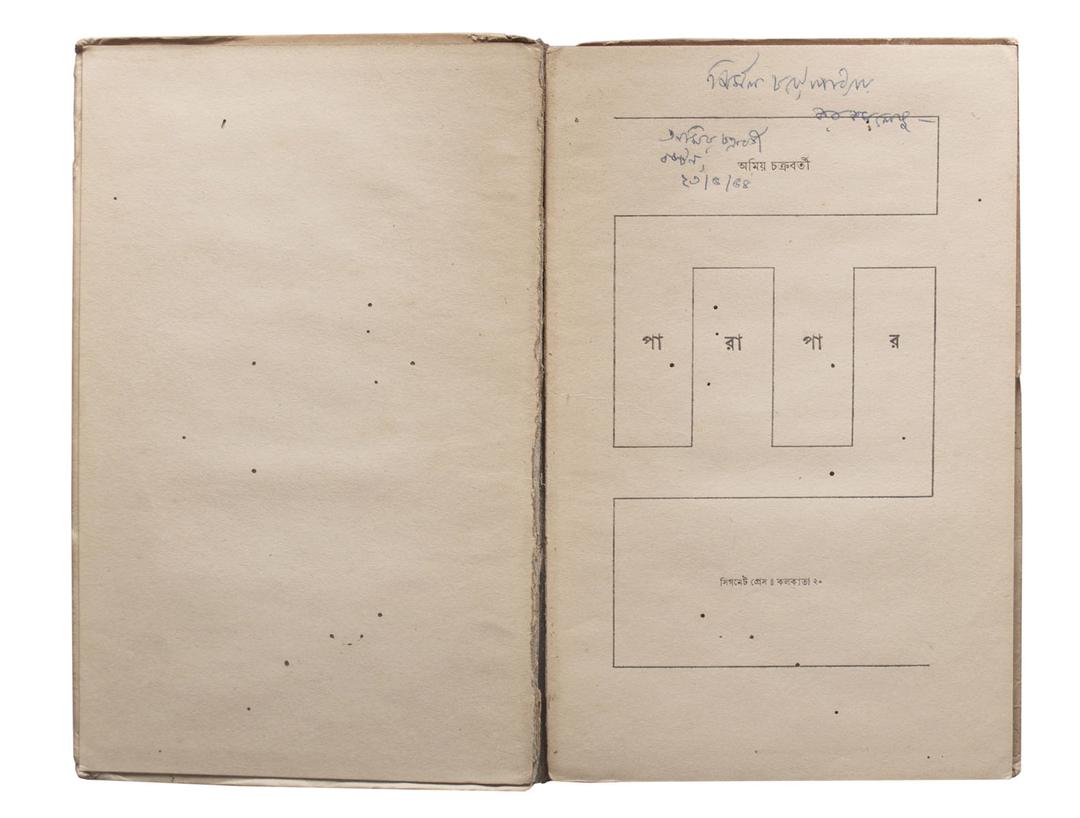 নির্মল চট্টোপাধ্যায়
করকমলেষু —
অমিয় চক্রবর্তী
বস্টন,
২৩/৫/৫৪
অমিয় চক্রবর্তী
পা রা পা র
সিগনেট প্রেস ঃ কলকাতা ২০